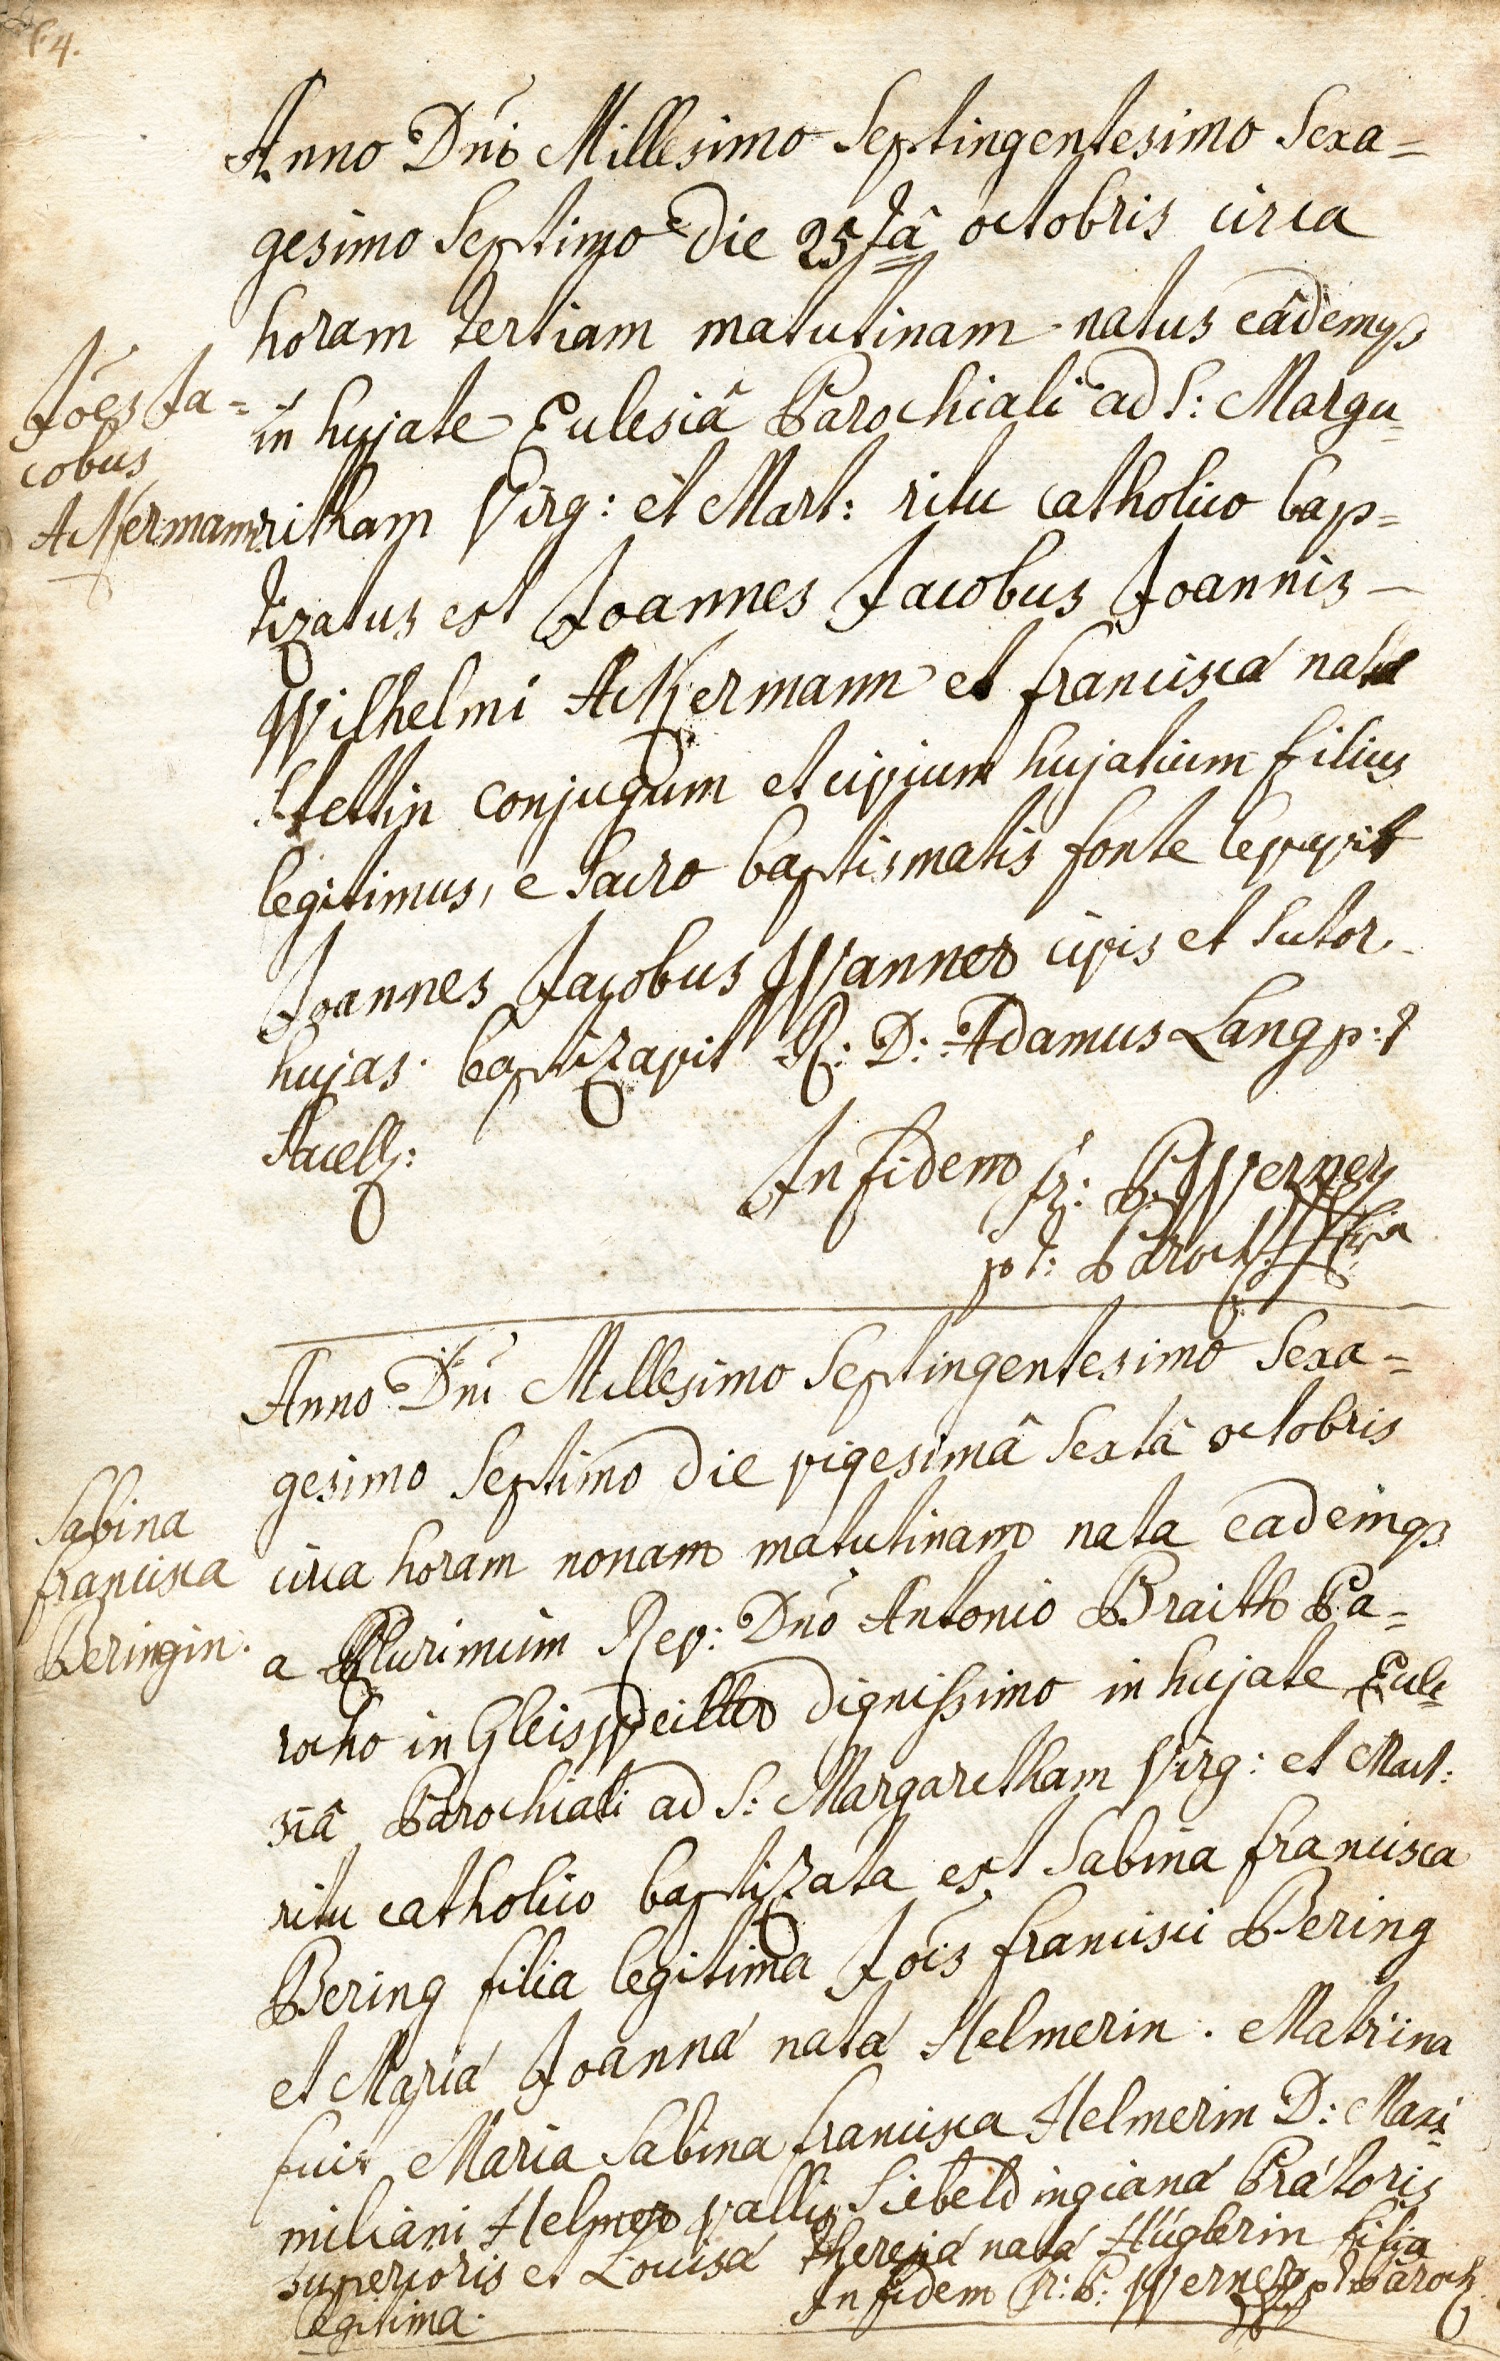 64.
Anno Dni Millesimo Septingentesimo Sexa=
gesimo Septimo die 25tâ octobris circa
horam tertiam matutinam natus eâdemqz
Jões Ja=
cobus
Ackermann
in hujate Ecclesiâ Parochiali ad S: Marga=
ritham Virg: et Mart: ritu catholico bap=
tizatus est Joannes Jacobus Joannis
Wilhelmi Ackermann et francisca nata
Stettin conjugum et civium hujatium filius
legitimus, e Sacro baptismatis fonte levavit
Joannes Jacobus Wanner civis et Sutor
hujas. baptizavit R: D: Adamus Lang p: t
Sacell:
In fidem fr: P. Werner
p t: Paroch:
Anno Dni Millesimo Septingentesimo Sexa=
gesimo Septimo die vigesimâ Sextâ octobris
Sabina
francisca
Beringin.
circa horam nonam matutinam nata eademqz
a Plurimum Rev: Dno Antonio Braith Pa=
rocho in Gleisweiller dignissimo in hujate Eccle
siâ Parochiali ad S: Margaretham Virg: et Mart:
ritu catholico baptizata est Sabina francisca
Bering filia legitima Jois francisci Bering
et Maria Joanna nata Helmerin. Matrina
fuit Maria Sabina francisca Helmerin D: Maxi=
miliani Helmer vallis Siebeldingiana Prátoris
superioris et Louisa theresia nata Húglerin filia
legitima.
In fidem fr: P: Werner p t Paroch